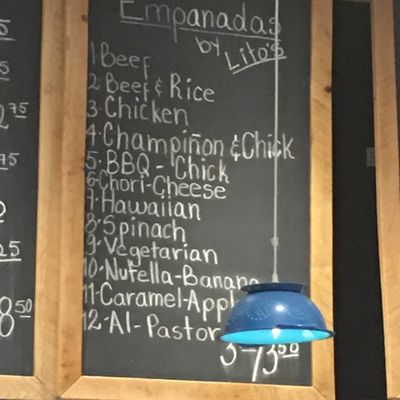 Empanadas
by Lito's
1 Beef
2· Beef & Rice
3· Chicken
4· Champiñon & Chick
5· BBQ - Chick
6· Chori-Cheese
7· Hawaiian
8· Spinach
9· Vegetarian
10· Nutella-Banana
11· Caramel-Appl
12· Al-Pastor
75
75
25
8 50